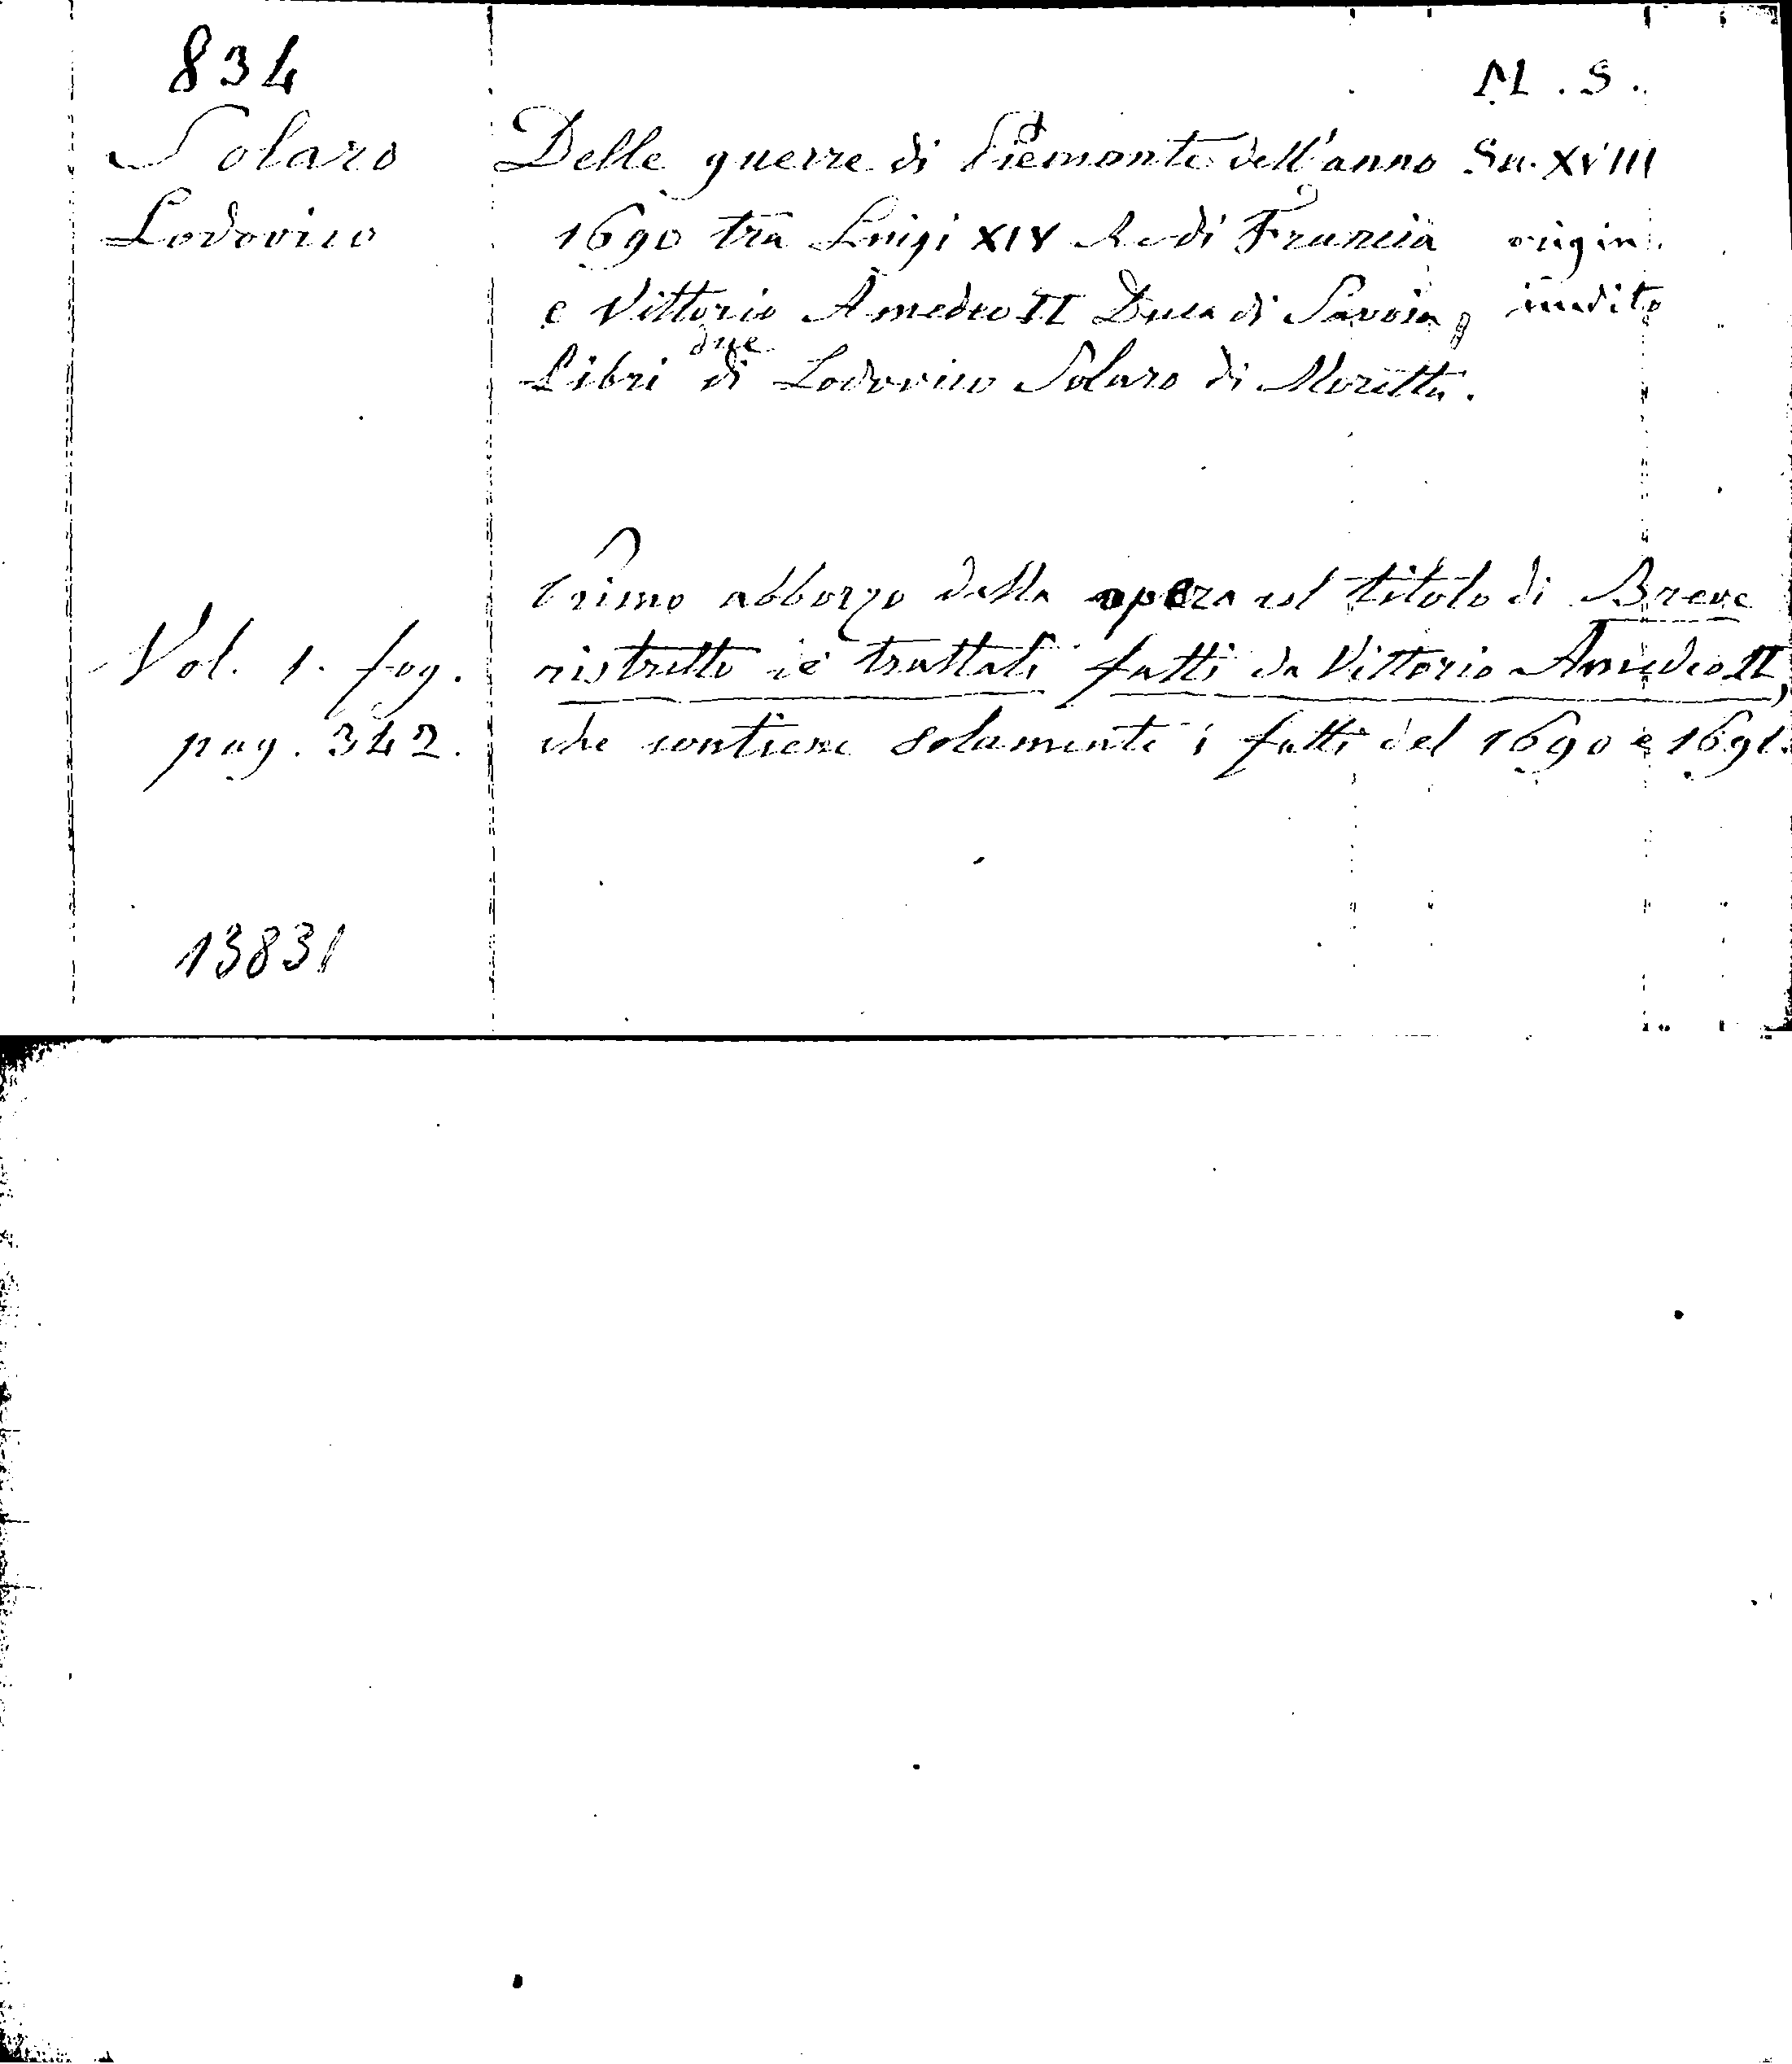 834
M. S.
Solaro
Lodovico
Delle guerre di Piemonte dell'anno
1690 tra Luigi XIV Re di Francia
e Vittorio Amedeo II Duca di Savoia,
due
Libri di Lodovico Solaro di Moretta.
Sec. XVIII
origin.
inedito
Primo abborzo della opera col titolo di Breve
ristretto de trattati fatti da Vittorio Amedeo II,
che contiene solamente i fatti del 1690 e 1691.
Vol. 1. fog.
pag. 342.
13831